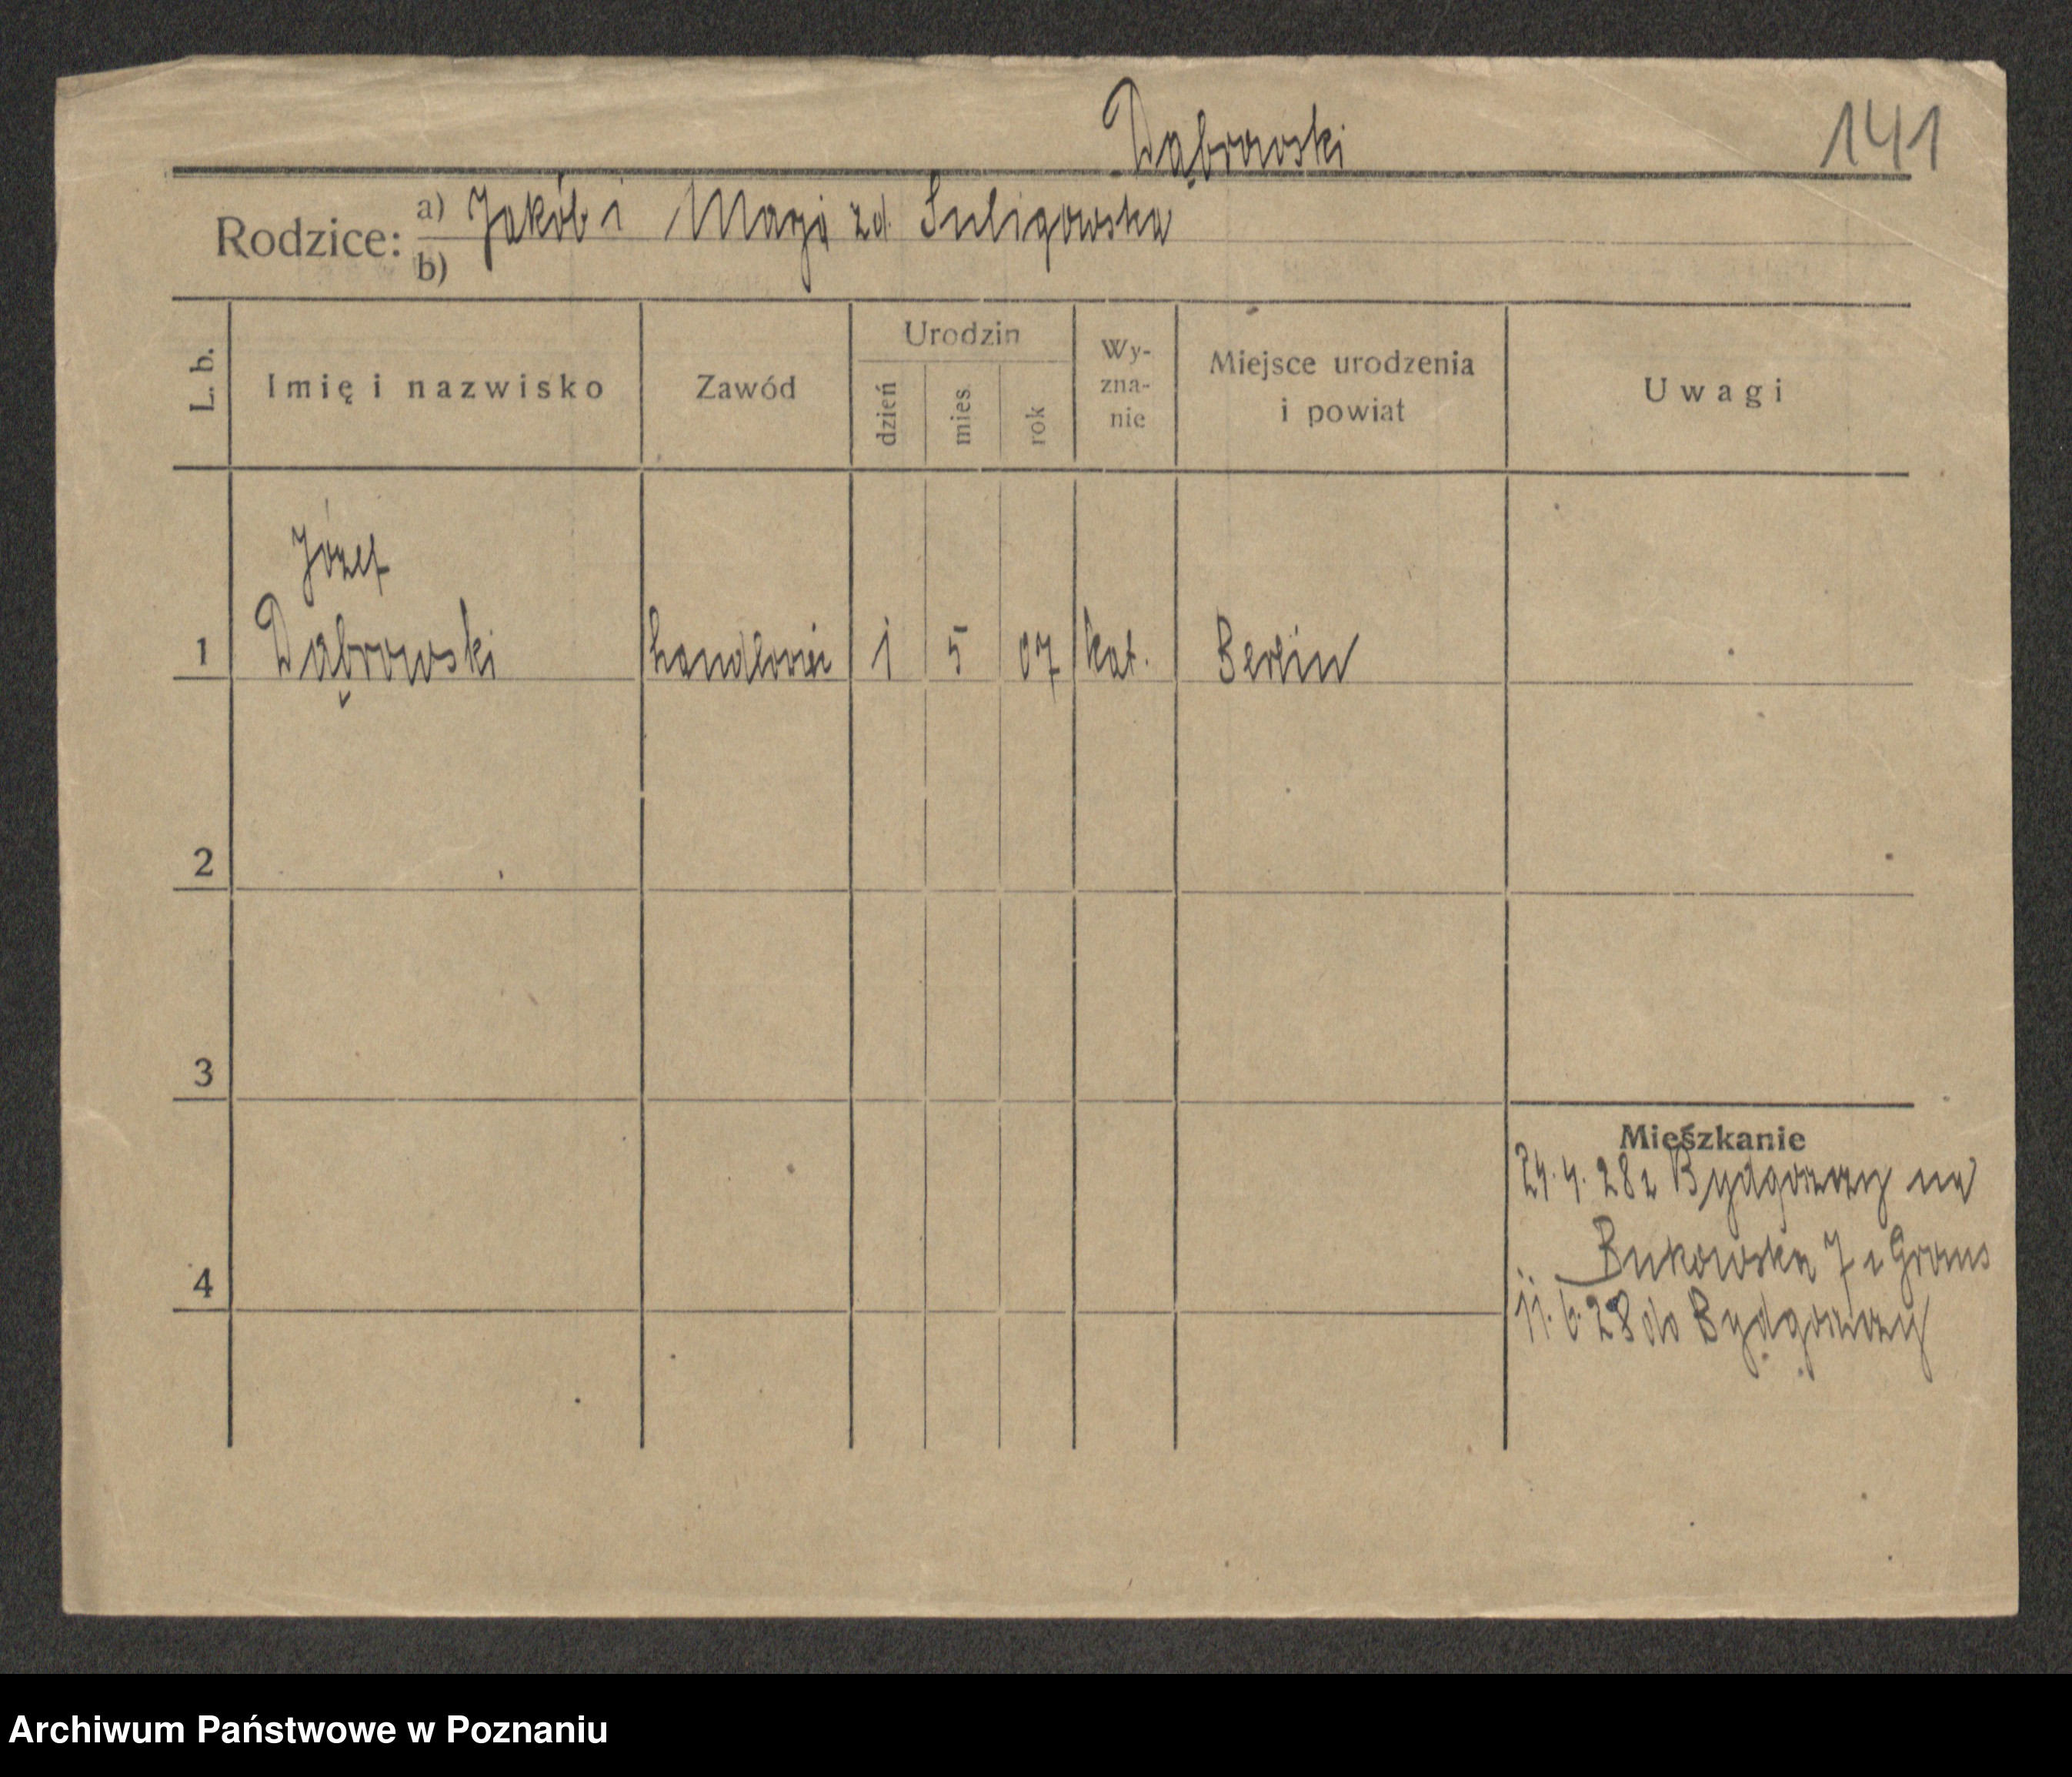 Dąbrowski
141
Rodzice: a) Jakób i Marja zd. Suligowska
b)
L. b.
Imię i nazwisko
Zawód
Urodzin
dzień
mies.
rok
Wy-
zna-
nie
Miejsce urodzenia
i powiat
Uwagi
Józef
1 Dąbrowski handlowiec 1 5 07 kat. Berlin
2
3
Mieszkanie
24.4.28 z Bydgoszczy na
Bukowska 7 z
4
11.6.28 do Bydgoszczy
Archiwum Państwowe w Poznaniu